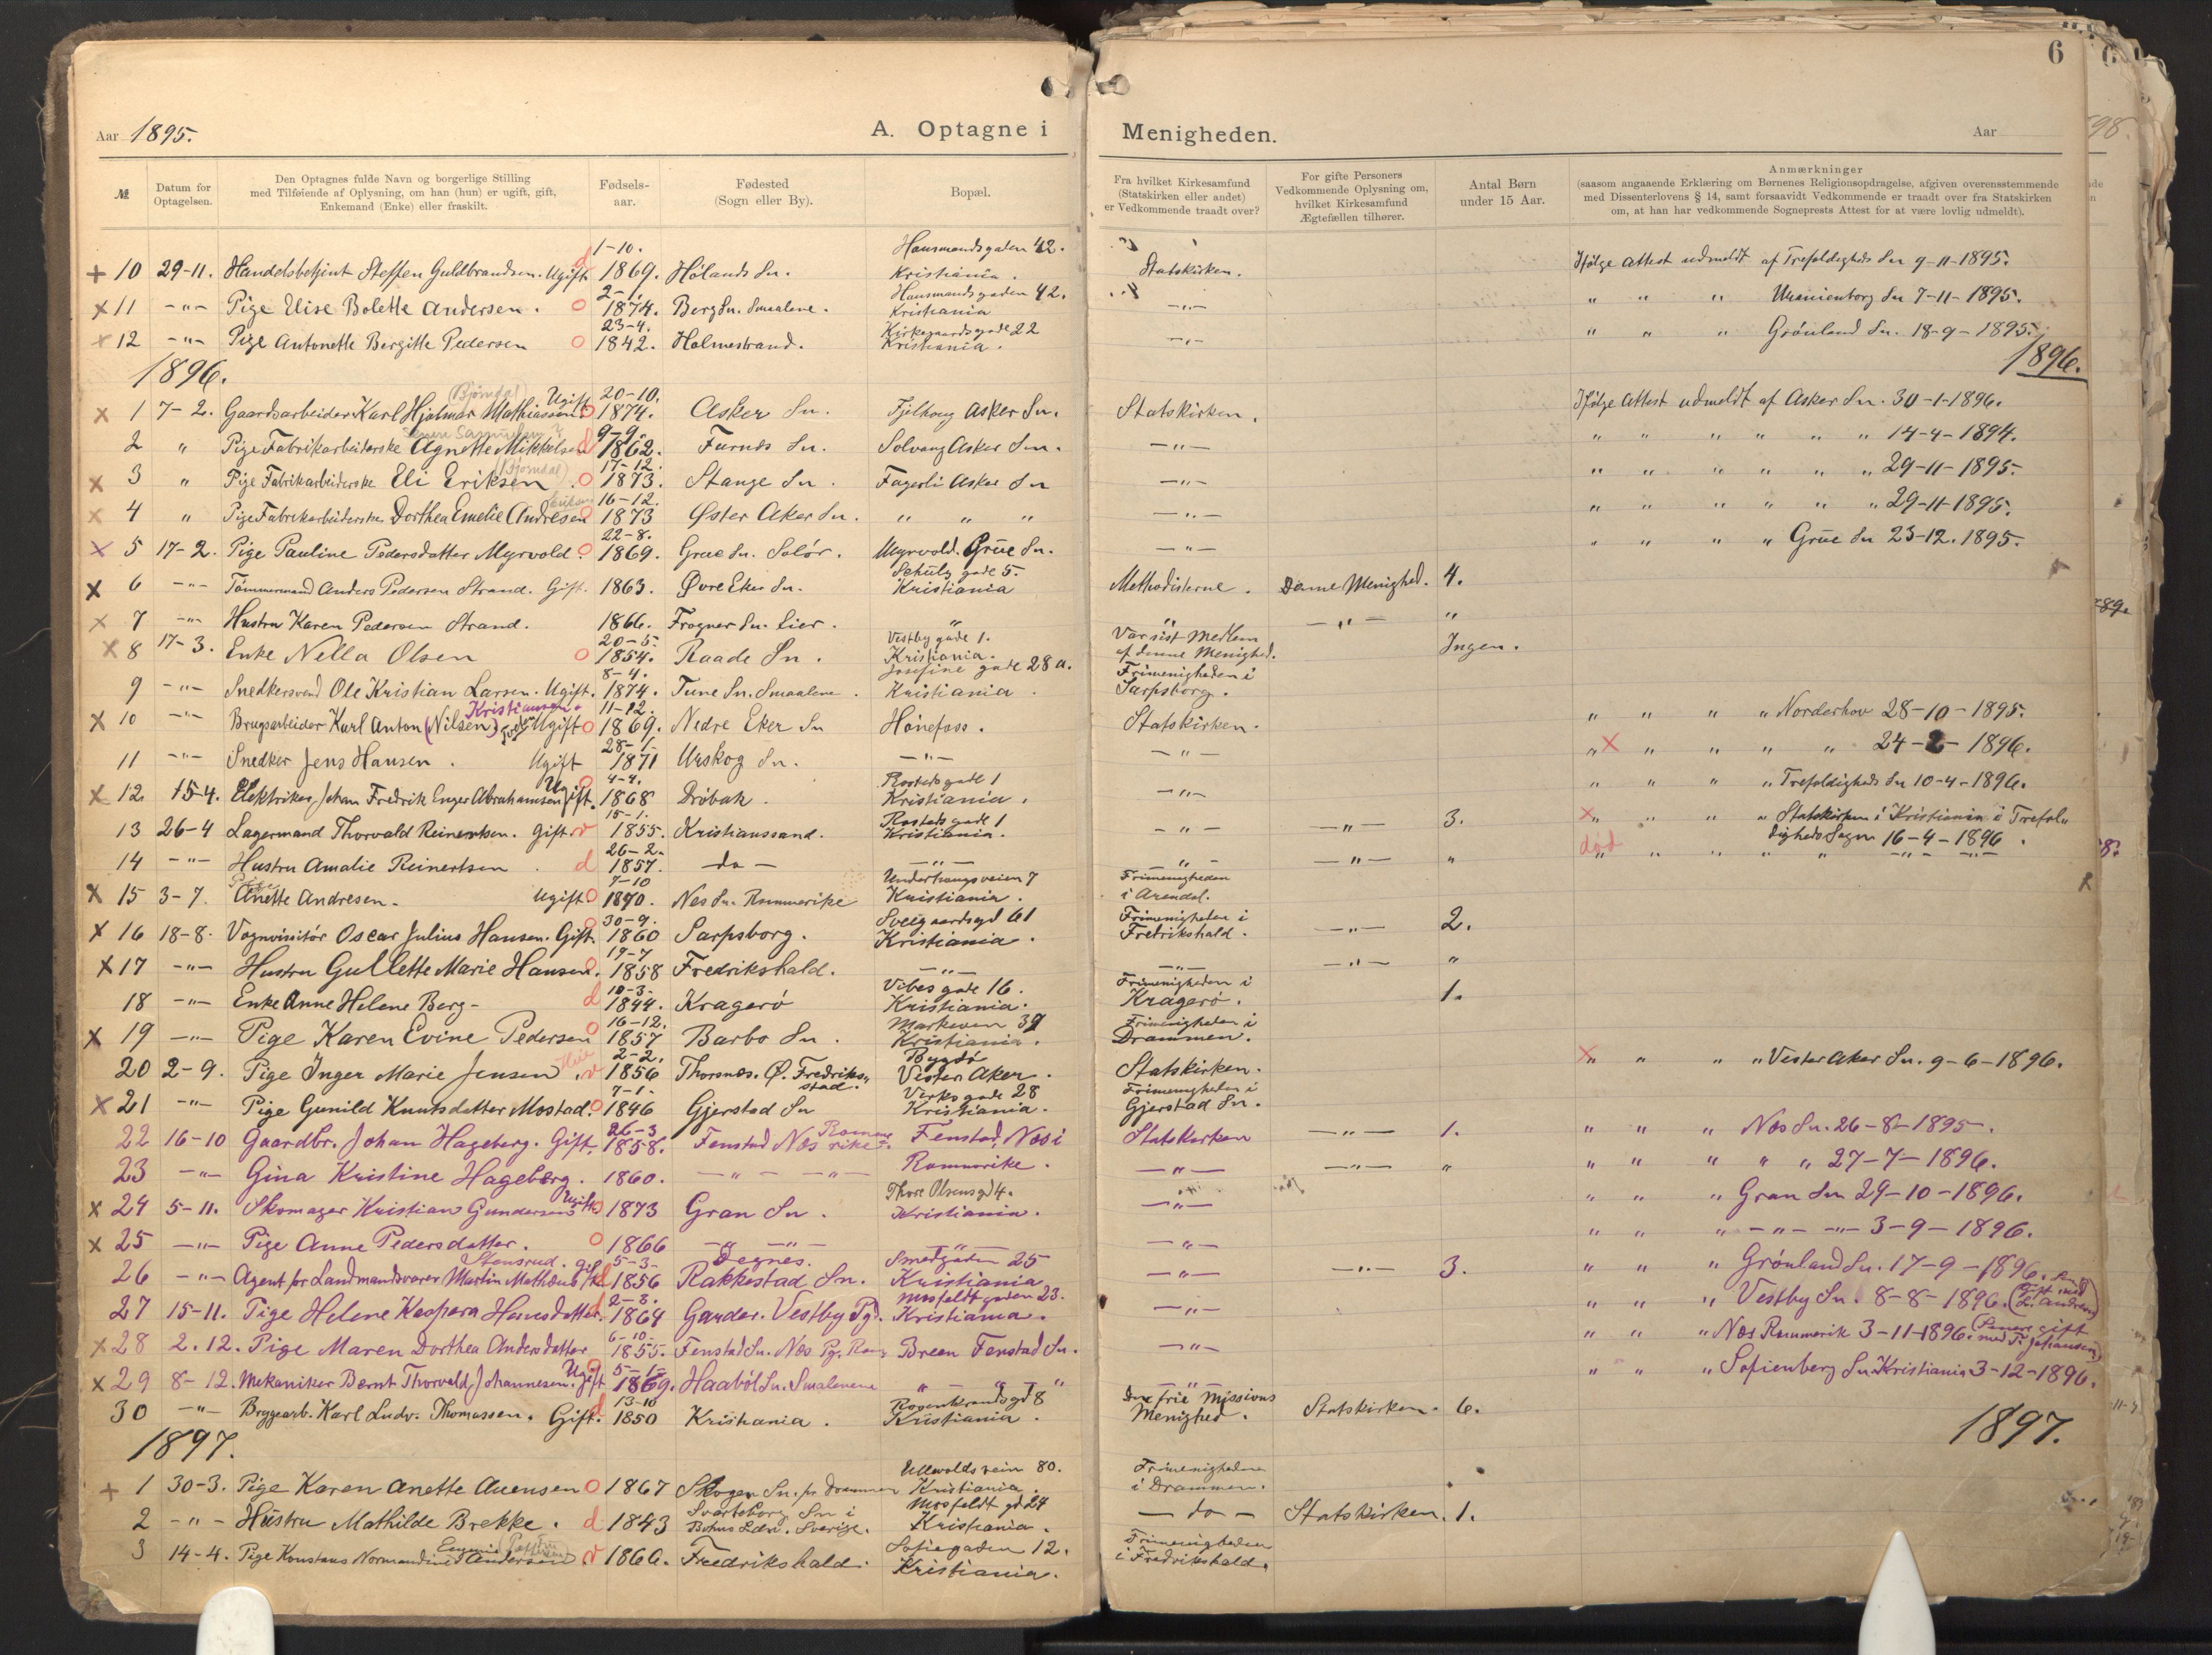 6
Aar 1895.
A. Optagne i Menigheden.
Aar
№
Datum for Optagelsen.
Den Optagnes fulde Navn og borgerlige Stilling
med Tilføiende af Oplysning, om han (hun) er ugift, gift,
Enkemand (Enke) eller fraskilt.
Fødsels-
aar.
Fødested
(Sogn eller By).
Bopæl.
Fra hvilket Kirkesamfund
(Statskirken eller andet)
er Vedkommende traadt over?
For gifte Personers
Vedkommende Oplysning om,
hvilket Kirkesamfund
Ægtefællen tilhører.
Antal Børn
under 15 Aar.
Anmærkninger
(saasom angaaende Erklæring om Børnenes Religionsopdragelse, afgiven overensstemmende
med Dissenterlovens § 14, samt forsaavidt Vedkommende er traadt over fra Statskirken
om, at han har vedkommende Sogneprests Attest for at være lovlig udmeldt).
+ 10 29-11. Handelsbetjent Steffen Guldbrandsen. Ugift d 1-10. 1869. Hølands Sn. Hausmandsgaden 42. Kristiania. Statskirken. Ifølge Attest udmeldt af Trefoldigheds Sn 9-11-1895.
x 11 -"- Pige Elise Bolette Andersen. o 1874. Berg Sn. Smaalene. Hausmandsgaden 42. Kristiania -"- " " " Uranienborg Sn 7-11-1895.
x 12 -"- Pige Antonette Bergitte Pedersen o 23-4. 1842. Holmestrand. Kirkegaardsgade 22 Kristiania. -"- " " " Grønland Sn. 18-9-1895.
1896.
1896.
x 1 7-2. Gaardsarbeider Karl Hjalmar Mathiassen (Bjørndal) Ugift o 20-10. 1874. Asker Sn. Fjelhoug Asker Sn. Statskirken. Ifølge Attest udmeldt af Asker Sn. 30-1-1896.
2 " Pige Fabrikarbeiderske Agnette Mikkelsen d 9-9. 1862. Furnes Sn. Solvang Asker Sn. -"- " " " " " " 14-4-1894.
x 3 " Pige Fabrikarbeiderske Eli Eriksen (Bjørndal) o 17-12. 1873. Stange Sn. Fagerli Asker Sn -"- " " " " " " 29-11-1895.
x 4 " Pige Fabrikarbeiderske Dorthea Emelie Andresen o 16-12. 1873 Øster Aker Sn. " " " -"- " " " " " " 29-11-1895.
x 5 17-2. Pige Pauline Pedersdatter Myrvold. o 22-8. 1869. Grue Sn. Solør. Myrvold. Grue Sn. -"- " " " " Grue Sn 23-12.1895.
x 6 -"- Tømmermand Anders Pedersen Strand. Gift. 1863. Øvre Eker Sn. Schultz gade 5. Kristiania Methodisterne. Denne Menighed. 4.
x 7 -"- Hustru Karen Pedersen Strand. 1866. Frogner Sn. Lier. " " -"- "
x 8 17-3. Enke Nella Olsen o 20-5. 1854. Raade Sn. Vestby gade 1. Kristiania. Var sist Medlem af denne Menighed. Ingen.
9 -"- Snedkersvend Ole Kristian Larsen. Ugift. 8-4. 1874. Tune Sn. Smaalene. Josefine gade 28 a. Kristiania. Frimenigheden i Sarpsborg.
x 10 -"- Brugsarbeider Karl Anton (Nilsen) Kristiansen. Ugift o 11-12. 1869. Nedre Eker Sn Hönefoss. Statskirken. " " " " Norderhov 28-10-1895.
11 -"- Snedker Jens Hansen. Ugift 28-1- 1871 Urskog Sn. -"- -"- "x " " " " 24-2-1896.
x 12. 15-4. Elektriker Johan Fredrik Enger Abrahamsen Ugift. o 4-4. 1868 Dröbak. Rosteds gade 1 Kristiania. -"- " " " " Trefoldigheds Sn 10-4-1896.
13 26-4 Lagermand Thorvald Reinertsen. Gift v 15-1. 1855. Kristianssand. Rosteds gade 1 Kristiania. -"- -"- 3. x " " " " Statskirken i Kristiania i Trefol"
digheds Sogn 16-4-1896.
14 -"- Hustru Amalie Reinertsen. d 26-2- 1857. -do- -"- -"- -"- " død " " " " " -"- -"-
x 15 3-7. Pige Anette Andresen. Ugift o 7-10 1870. Nes Sn. Rommerike Underhaugsveien 7 Kristiania. Frimenigheden i Arendal.
x 16 18-8. Vognvisitör Oscar Julius Hansen. Gift. o 30-9. 1860 Sarpsborg. Sveigaardsgd 61 Kristiania. Frimenigheden i Fredrikshald. -"- 2.
x 17 -"- Hustru Gullette Marie Hansen. o 19-7 1858 Fredrikshald. -"- -"- -"- "
18 -"- Enke Anne Helene Berg- d 10-3- 1844. Kragerö Vibes gade 16. Kristiania. Frimenigheden i Kragerö. 1.
x 19 -"- Pige Karen Evine Pedersen o 16-12. 1857 Barbo Sn. Markeven 39 Kristiania. Frimenigheden i Drammen.
20 2-9. Pige Inger Marie Jensen. v 2-2. 1856 Thorsnes. Ø. Fredriksstad. Bygdö Vester Aker. Statskirken. x" " " " Vester Aker Sn. 9-6-1896.
x 21 -"- Pige Gunild Knutsdatter Mostad. o 7-1. 1846 Gjerstad Sn Verksgade 28 Kristiania. Frimenigheden i Gjerstad Sn.
22 16-10 Gaardbr. Johan Hageberg. Gift. 26-3 1858. Fenstad Nes Rommerike. Fenstad, Nes i Statskirken -"- 1. " " " Nes Sn. 26-8-1895-.
23 -"- Gina Kristine Hageberg. 1860. -"- -"- Rommerike. -"- -"- " " " " " " 27-7-1896.
x 24 5-11. Skomager Kristian Gundersen Ugift o 1873 Gran Sn. Thore Olsens gd 4. Kristiania. -"- " " " Gran Sn 29-10-1896.
x 25 -"- Pige Anne Pedersdatter. o 1866 -"- -"- -"- -"- " " " -"- -"- 3-9-1896.
26 -"- Agent for Landmandsvarer Martin Mathæus Stensrud. gift d 5-3- 1856 Degnes. Rakkestad Sn. Smedgaden 25 Kristiania -"- -"- 3. " " " Grønland Sn. 17-9-1896.
27 15-11. Pige Helene Kaspara Hansdatter. d 2-8. 1864 Garder. Vestby Pgd. Mosfeldt gaden 23. Kristiania. -"- " " " Vestby Sn. 8-8-1896. (Gift med L. Andresen)
x 28 2.12. Pige Maren Dorthea Andersdatter 6-10- 1855. Fenstad Sn. Nes Pg. Rom. Breen Fenstad Sn. -"- " " " Nes Rommerik 3-11-1896. (Senere gift med T. Johansen)
x 29 8-12. Mekaniker Bernt Thorvald Johannesen. Ugift o 5-1- 1869. Haaböl Sn. Smalenene " - " - " -"- " " " Sofienberg Sn. Kristiania 3-12-1896.
30 -"- Bryggearb. Karl Ludv. Thomassen. Gift. d 13-10 1850 Kristiania. Rosenkrandsgd 8 Kristiania. Den frie Missions Menighed. Statskirken. 6.
1897.
1897.
+ 1 30-3. Pige Karen Anette Auensen o 1867 Skoger Sn. pr Drammen Ullevoldsvein 80. Kristiania. Frimenigheden i Drammen.
2 -"- Hustru Mathilde Brekke. d 1843 Svarteborg Sn i Bohus Len. Sverige. Mosfeldt gd 24 Kristiania. -do- Statskirken. 1.
3 14-4. Pige Konstans Normandine Andersen v 1866. Fredrikshald. Sofiegaden 12. Kristiania. Frimenigheden i Fredrikshald.